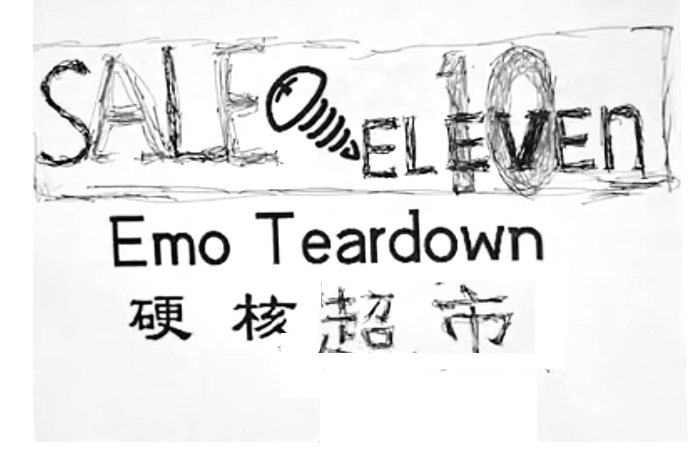 SALE 10 ELEVEn
Emo Teardown
硬核超市